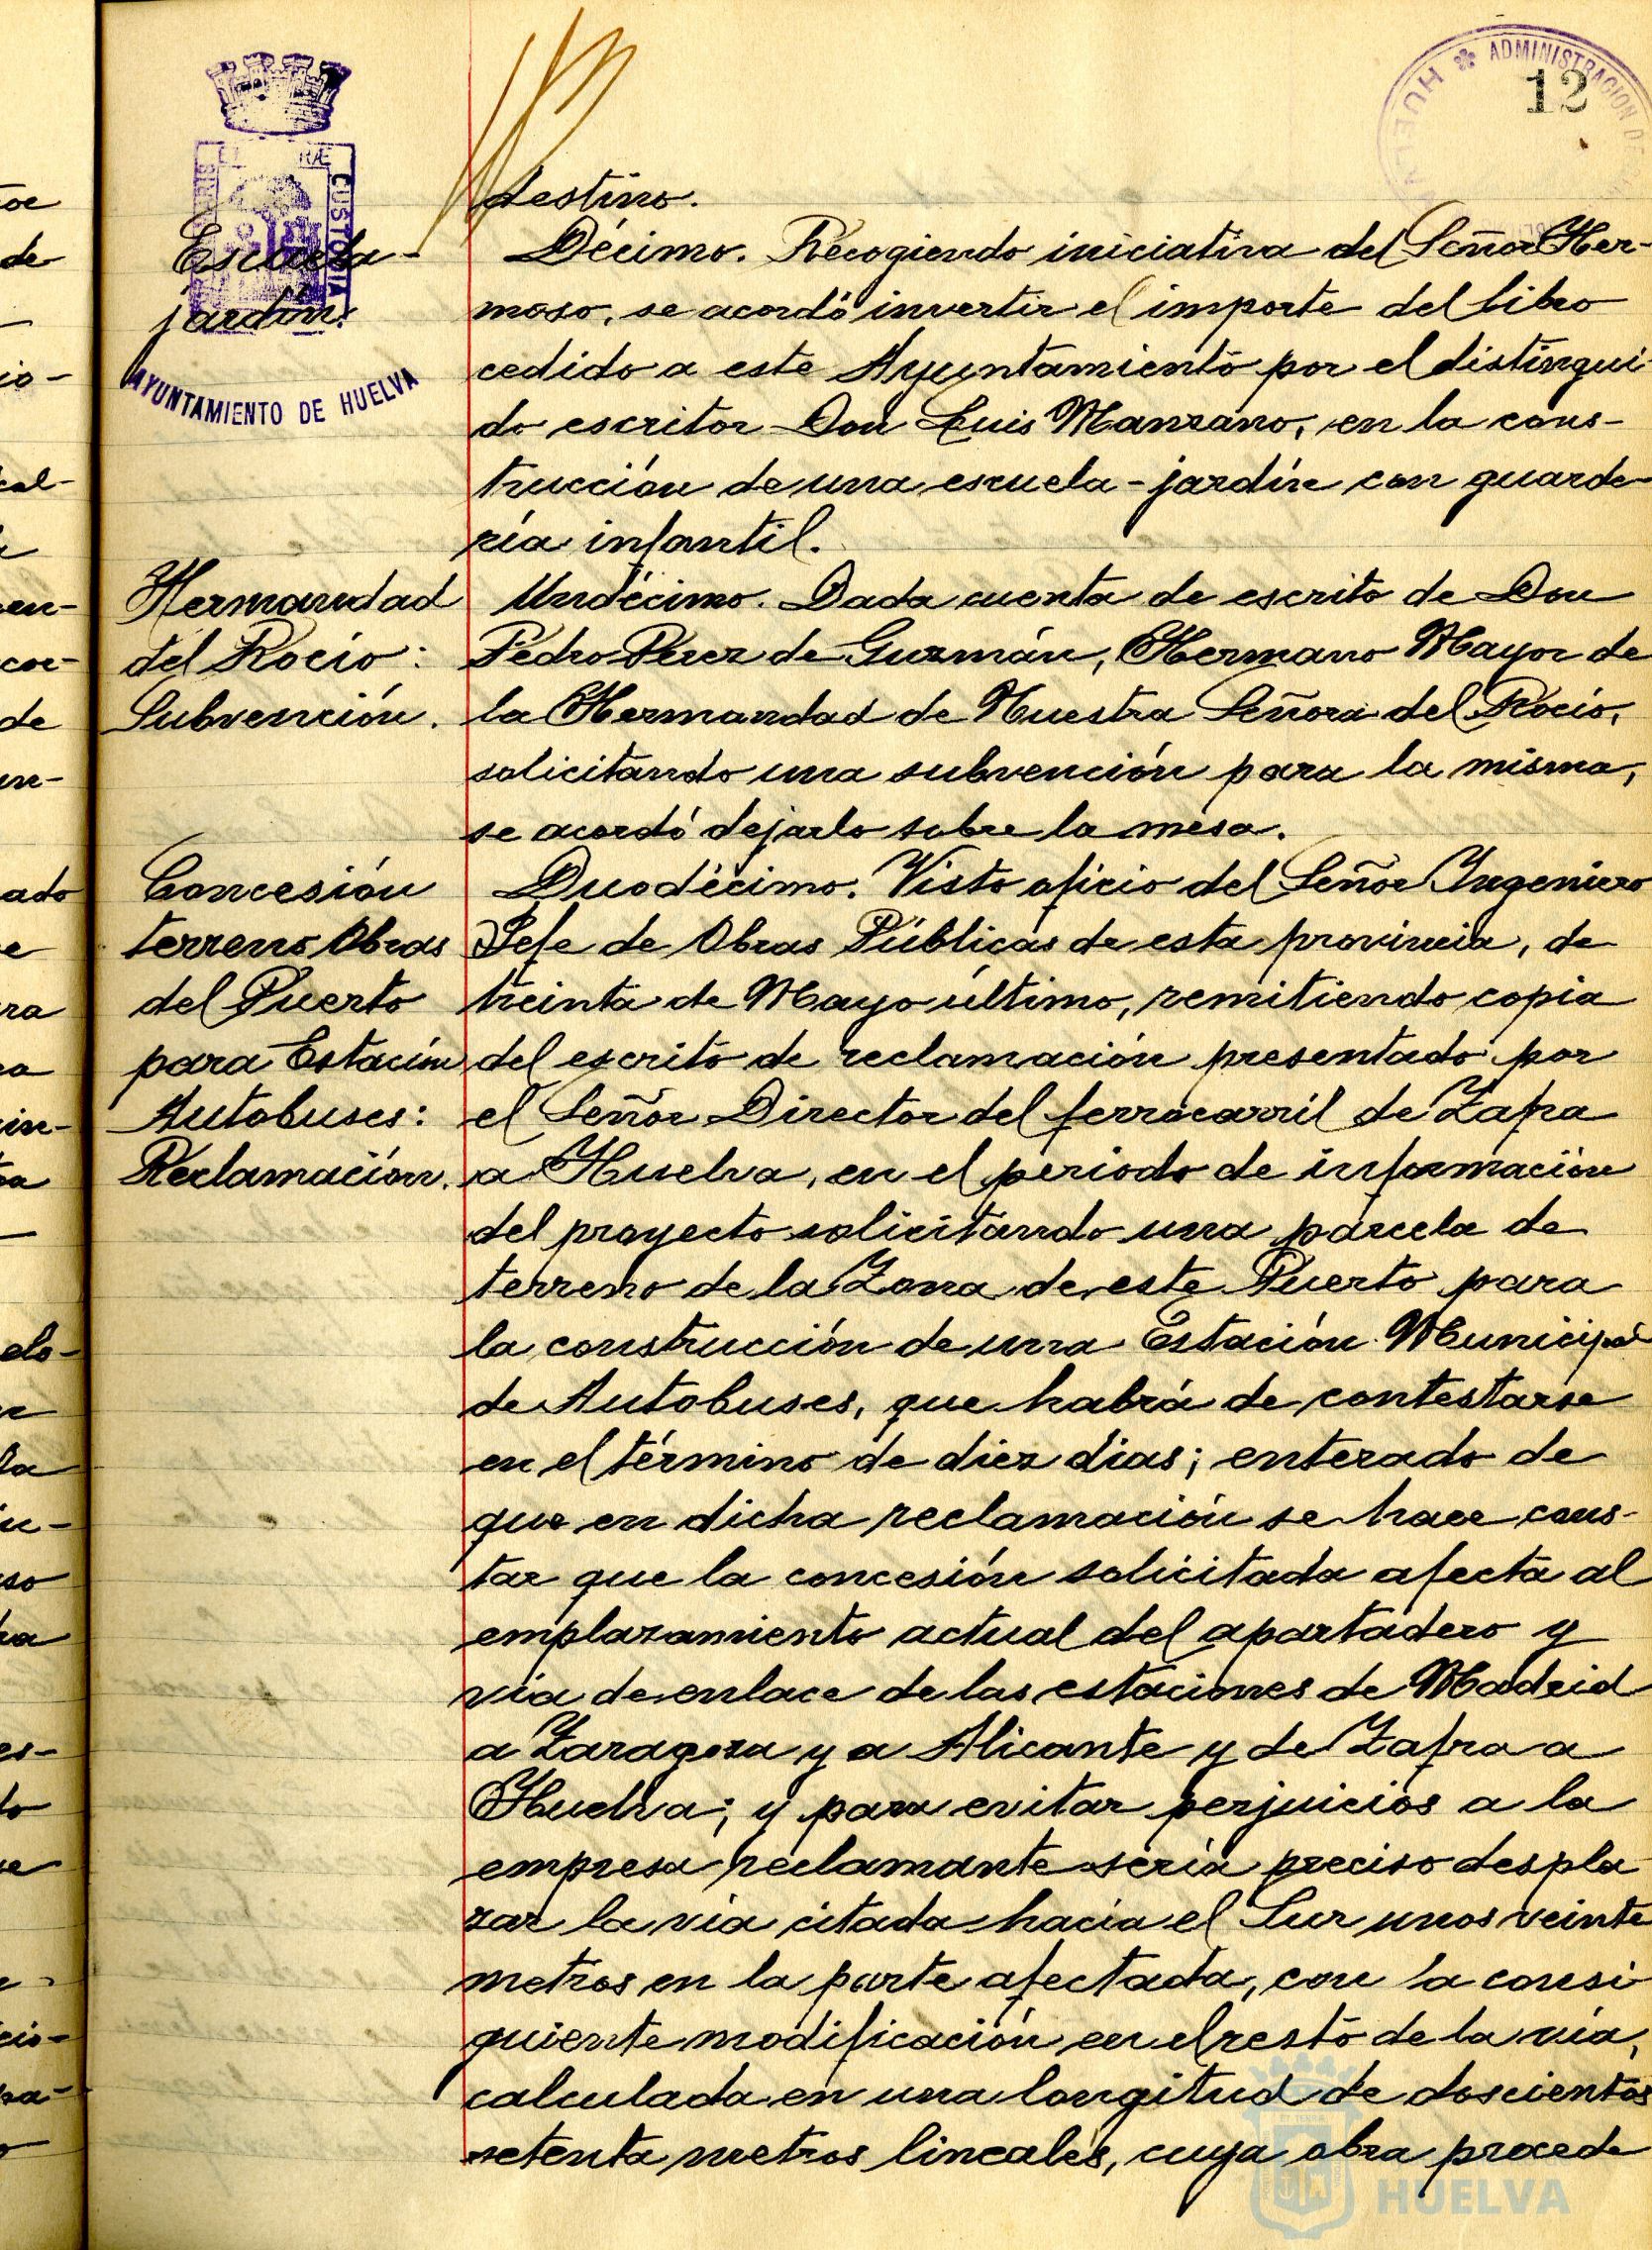 12
HUELVA ADMINISTRACION D
RIS
RÆ
CUSTODIA
AYUNTAMIENTO DE HUELVA
destino.
Escuela-
jardín:
Décimo. Recogiendo iniciativa del Señor Her-
moso, se acordó invertir el importe del libro
cedido a este Ayuntamiento por el distingui-
do escritor Don Luis Manzano, en la cons-
trucción de una escuela-jardín con guarde-
ría infantil.
Hermandad
del Rocío:
Subvención.
Undécimo. Dada cuenta de escrito de Don
Pedro Pérez de Guzmán, Hermano Mayor de
la Hermandad de Nuestra Señora del Rocío,
solicitando una subvención para la misma,
se acordó dejarlo sobre la mesa.
Concesión
terreno Obras
del Puerto
para Estación
Autobuses:
Reclamación.
Duodécimo. Visto oficio del Señor Ingeniero
Jefe de Obras Públicas de esta provincia, de
treinta de Mayo último, remitiendo copia
del escrito de reclamación presentado por
el Señor Director del ferrocarril de Zafra
a Huelva, en el período de información
del proyecto solicitando una parcela de
terreno de la Zona de este Puerto para
la construcción de una Estación Municipal
de Autobuses, que habrá de contestarse
en el término de diez días; enterado de
que en dicha reclamación se hace cons-
tar que la concesión solicitada afecta al
emplazamiento actual del apartadero y
vía de enlace de las estaciones de Madrid
a Zaragoza y a Alicante y de Zafra a
Huelva; y para evitar perjuicios a la
empresa reclamante sería preciso despla-
zar la vía citada hacia el Sur unos veinte
metros en la parte afectada, con la consi-
guiente modificación en el resto de la vía,
calculada en una longitud de doscientos
setenta metros lineales, cuya obra procede
HUELVA